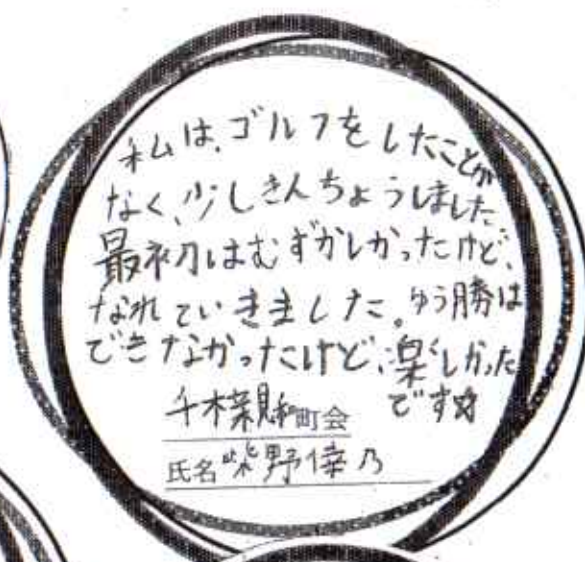 私は、ゴルフをしたことが
なく、少しきんちょうしました
最初はむずかしかったけど、
なれていきました。ゆう勝は
できなかったけど、楽しかった
です☆
町会
氏名 柴野倖乃